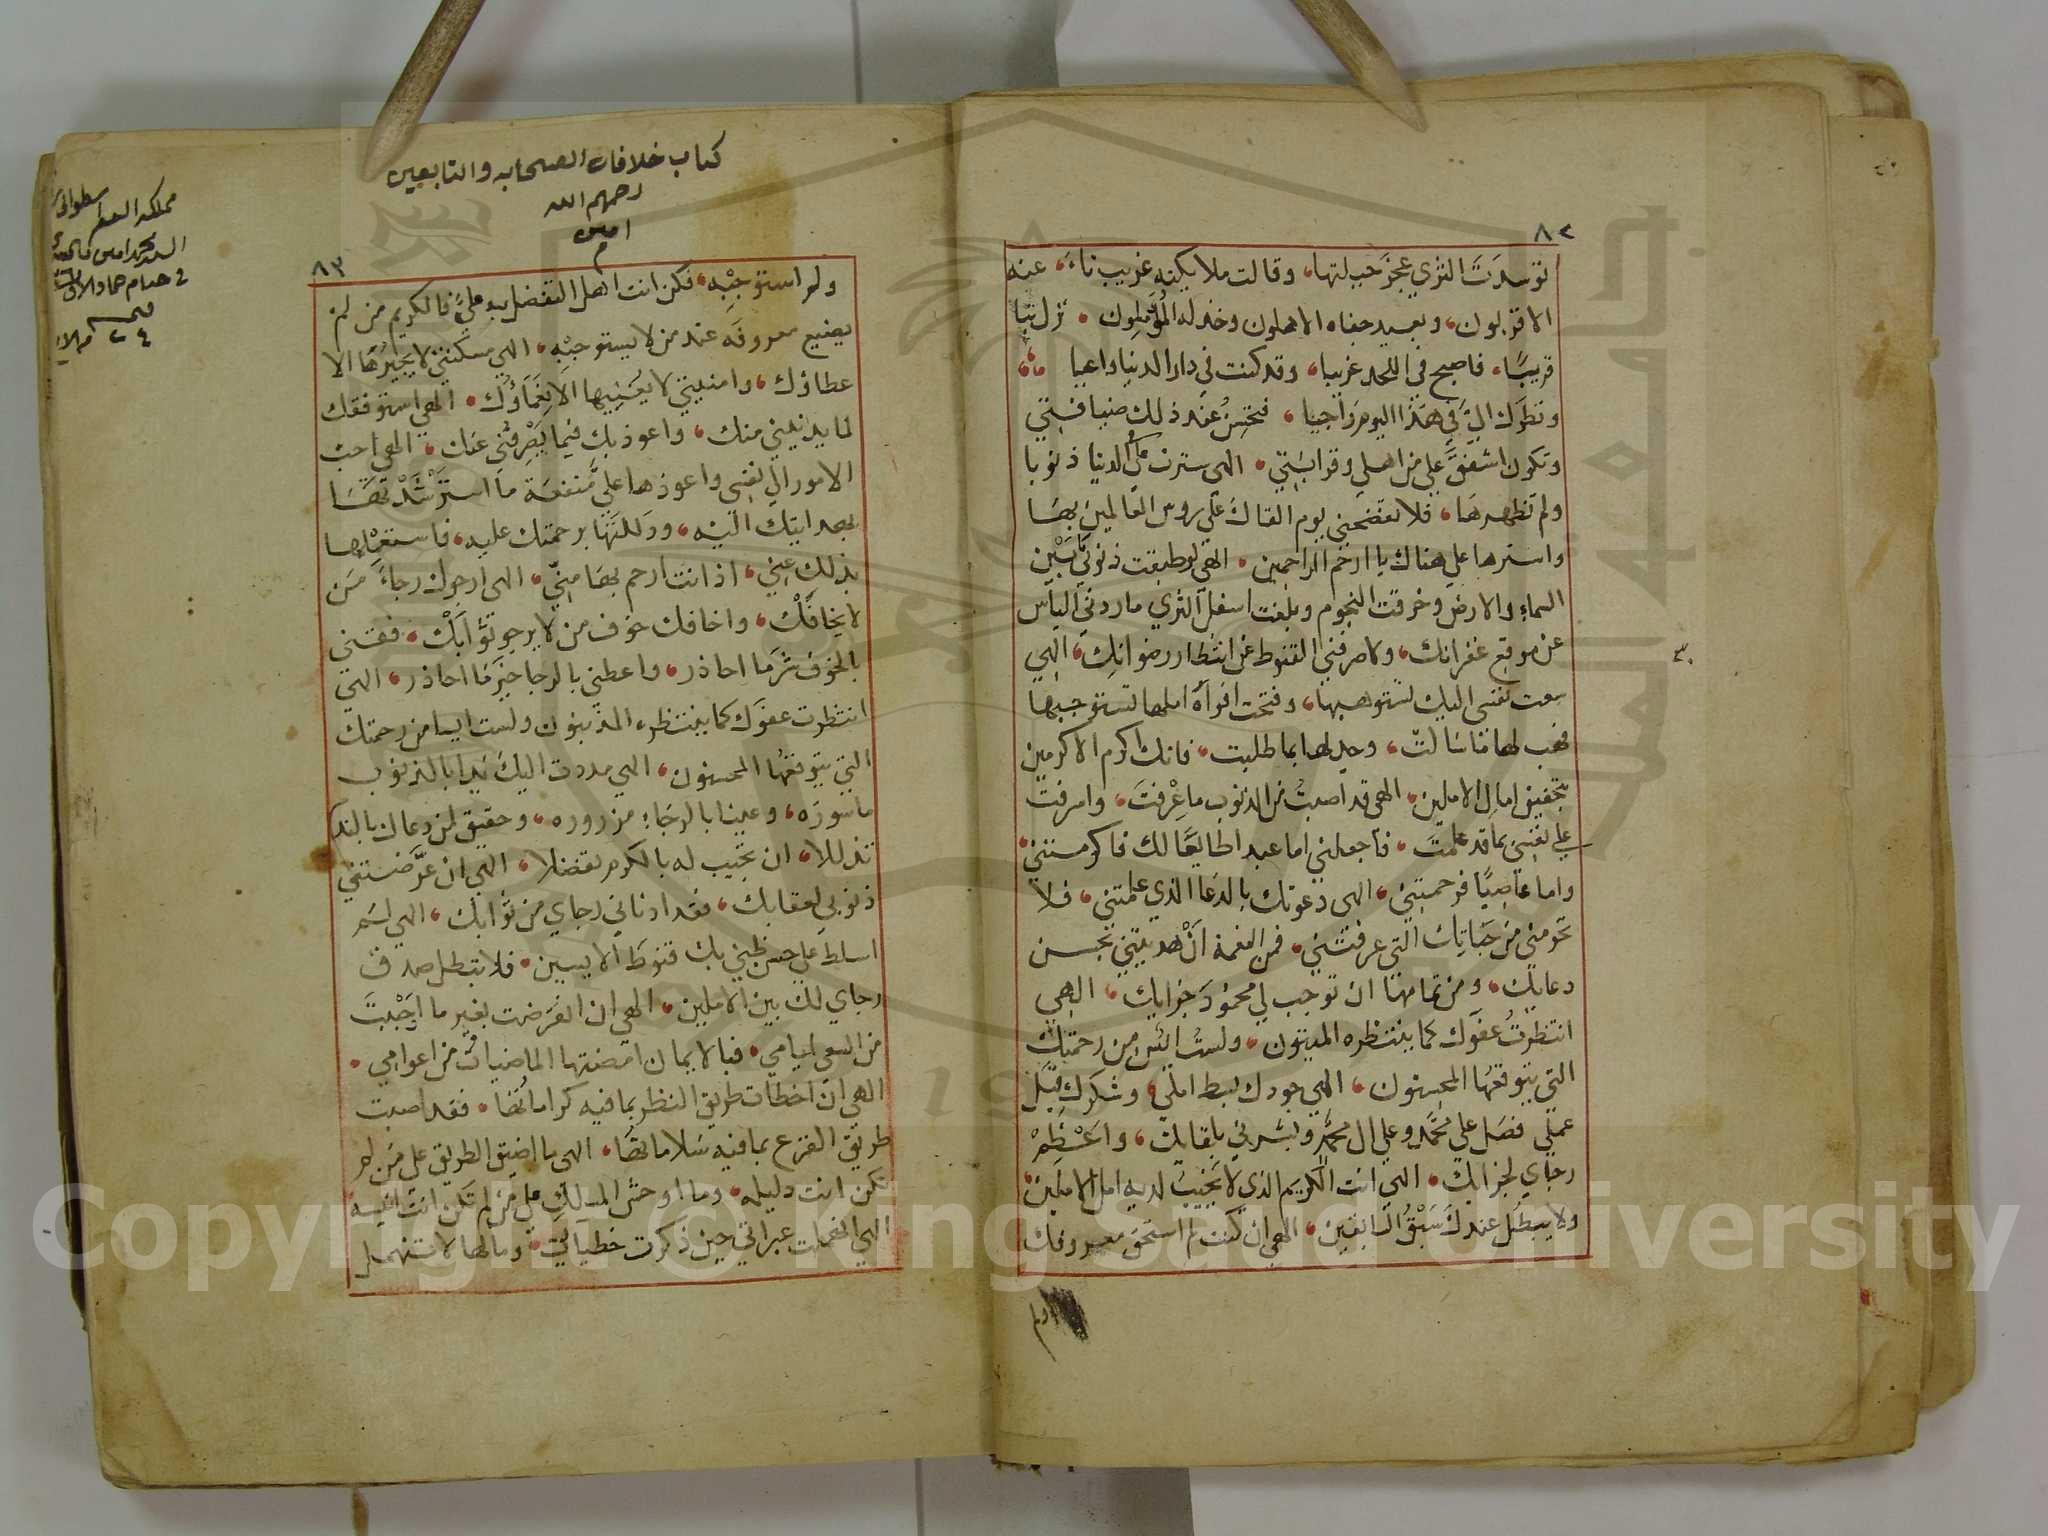 ٨٢
توسدت الثرى عجز حيلتها، وقالت ملايكته غريب ناء عنه
الاقربون، وبعيد جفاه الاهلون وخذله المؤملون، نزل بنا
قريبًا، فاصبح في اللحد غريبا، وقد كنت في دار الدنيا داعيا
ونظرك اليَّ في هذا اليوم راجيا، فتحسن عند ذلك ضيافتي
وتكون اشفق علي من اهلي وقرابتي، الهي سترت علي في الدنيا ذنوبا
ولم تظهرها، فلا تفضحني يوم القاك على روس العالمين بها
واسترها علي هناك يا ارحم الراحمين، الهي لو طبقت ذنوبي ما بين
السماء والارض وخرقت النجوم وبلغت اسفل الثرى ما ردني الياس
عن موقع غفرانك، ولا صرفني القنوط عن انتظار رضوانك، الهي
سعت نفسي اليك لتستوهبها، وفتحت افواه املها تستوجبها
فهب لها ما سالت، وجد لها بما طلبت، فانك اكرم الاكرمين
بتحقيق امال الاملين، الهي قد اصبت من الذنوب ما عرفت، واسرفت
على نفسي بما قد علمت، فاجعلني اما عبدا طايعًا لك فاكرمتني
واما عاصيًا فرحمتني، الهي دعوتك بالدعا الذي علمتني، فلا
تحرمني من حباتك التي عرفتني، فمن النعمة ان هديتني بحسن
دعايك، ومن تمامها ان توجب لي محمود جزايك، الهي
انتظرتُ عفوك كما ينتظره المذنبون، ولست ائس من رحمتك
التي يتوقعها المحسنون، الهي جودك بسط املي، وشكرك قبل
عملي فصل على محمد وعلى ال محمد وبشرني بلقايك، واعظم
رجاي لجزايك، الهي انت الكريم الذي لا يخيب لديه امل الاملين
ولا يبطل عندك سبق السابقين، الهي ان كنت لم استحق معروفك
ولم
٣٠
كتاب خلافات الصحابه والتابعين
رحمهم الله
امين
٨٣
ولم استوجبه، فكن انت اهل التفضل به عليَّ فالكريم من لم
يضيع معروفه عند من لا يستوجبه، الهي مسكنتي لا يجبرها الا
عطاؤك، وامنيتي لا يغنيها الا نعماؤك، الهي استوفقك
لما يدنيني منك، واعوذ بك فيما يصرفني عنك، الهي احب
الامور الى نفسي واعودها علي منفعة ما استرشدتها
بهدايتك اليه، ودللتها برحمتك عليه، فاستعملها
بذلك عني، اذ انت ارحم بها مني، الهي ارجوك رجاء من
لا يخافك، واخافك خوف من لا يرجو ثوابك، فقني
بالخوف شر ما احاذر، واعطني بالرجا خير ما احاذر، الهي
انتظرت عفوك كما ينتظره المذنبون ولست ايسا من رحمتك
التي يتوقعها المحسنون، الهي مددت اليك يدا بالذنوب
ماسوره، وعينا بالرجاء مزروره، وحقيق لمن دعاك بالندم
تذللا، ان تجيب له بالكرم تفضلا، الهي ان عرضتني
ذنوبي لعقابك، فقد ادناني رجاي من ثوابك، الهي لم
اسلط على حسن ظني بك قنوط الايسين، فلا تبطل صدق
رجاي لك بين الاملين، الهي ان انقرضت بغير ما احببت
من السعي ايامي، فبالايمان امضتها الماضيات من اعوامي،
الهي ان اخطات طريق النظر بما فيه كراماتها، فقد اصبت
طريق الفزع بما فيه سلاماتها، الهي ما اضيق الطريق على من لم
تكن انت دليله، وما اوحش المسالك على من لم تكن انت انيسه
الهي انهملت عبراتي حين ذكرت خطياتي، ومالها لا تنهمل